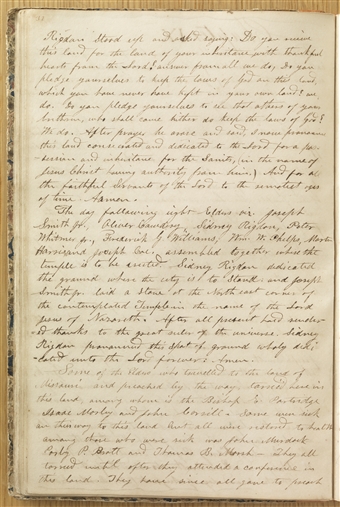 Rigdon stood up and asked saying: Do you receive
this land for the land of your inheritance with thankful
hearts from the Lord? answer from all we do, Do you
pledge yourselves to keep the laws of God on this land,
which you have never have kept in your own land? we
do. Do you pledge yourselves to see that others of your
brethren, who shall come hither do keep the laws of God?
We do. After prayer he arose and said, I now pronounce
this land consecrated and dedicated to the Lord for a po-
ssession and inheritance for the Saints, (in the name of
Jesus Christ having authority from him.) And for all
the faithful Servants of the Lord to the remotest ages
of time. Amen.
The day following eight Elders viz. Joseph
Smith Jr., Oliver Cowdery, Sidney Rigdon, Peter
Whitmer Jr., Frederick G. Williams, Wm. W. Phelps, Martin
Harris and Joseph Coe, assembled together where the
temple is to be erected. Sidney Rigdon dedicated
the ground where the city is to stand: and Joseph
Smith Jr. laid a stone at the North east corner of
the contemplated Temple in the name of the Lord
Jesus of Nazareth. After all present had render-
ed thanks to the great ruler of the universe. Sidney
Rigdon pronounced this spot of ground wholy dedi-
cated unto the Lord forever: Amen.
Some of the Elders who travelled to the land of
and preached by the way, tarried here in
this land, among whom is the Bishop E. Partridge
Isaac Morley and John Corrill. Some were sick
on their way to this land but all were restored to health
among those who were sick was John Murdock
Parley P. Pratt and Thomas B. Marsh - they all
tarried until after they attended a conference in
this land. They have since all gone to preach